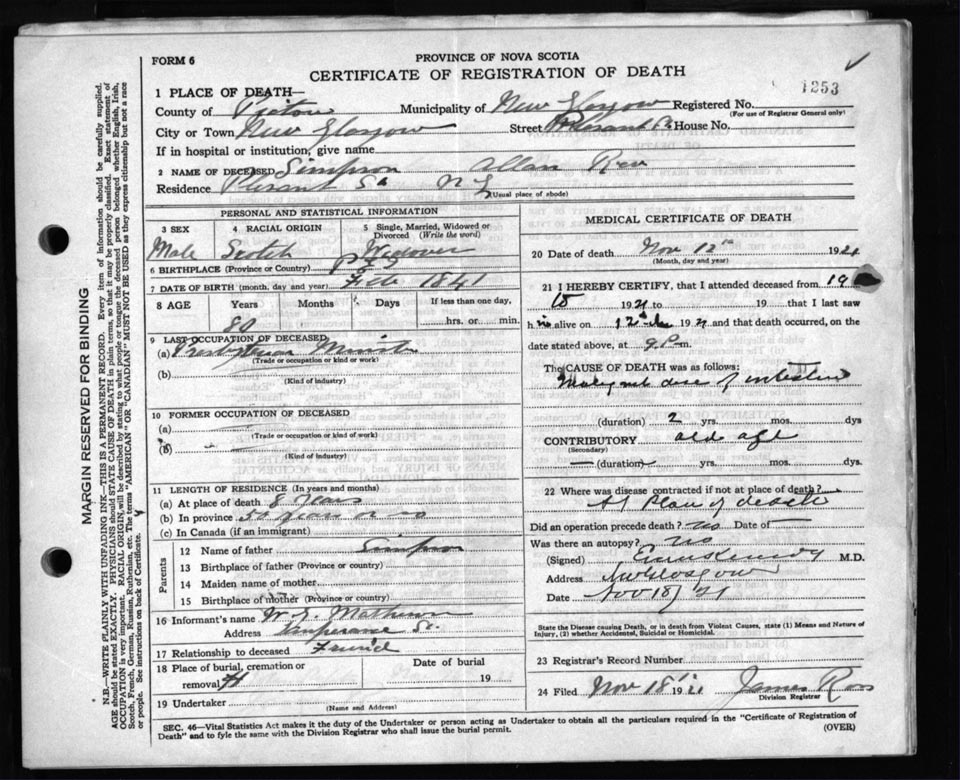 FORM 6
PROVINCE OF NOVA SCOTIA
CERTIFICATE OF REGISTRATION OF DEATH
1253
1 PLACE OF DEATH—
County of Pictou Municipality of New Glasgow Registered No.
(For use of Registrar General only)
City or Town New Glasgow Street Plesant St. House No.
If in hospital or institution, give name
2 NAME OF DECEASED Simpson Allan Rev
Residence Plesant St N G
(Usual place of abode)
PERSONAL AND STATISTICAL INFORMATION
3 SEX 4 RACIAL ORIGIN 5 Single, Married, Widowed or Divorced (Write the word)
Male Scotch Widower
6 BIRTHPLACE (Province or Country)
7 DATE OF BIRTH (month, day and year) Feb 1841
8 AGE Years Months Days If less than one day,
80 hrs. or min.
9 LAST OCCUPATION OF DECEASED
(a) Presbyterian Minister
(Trade or occupation or kind or work)
(b)
(Kind of industry)
10 FORMER OCCUPATION OF DECEASED
(a)
(Trade or occupation or kind of work)
(b)
(Kind of industry)
11 LENGTH OF RESIDENCE (In years and months)
(a) At place of death 8 years
(b) In province 50 years or so
(c) In Canada (if an immigrant)
Parents
12 Name of father Simpson
13 Birthplace of father (Province or country)
14 Maiden name of mother
15 Birthplace of mother (Province or country)
16 Informant's name W.
Address Temperance St.
17 Relationship to deceased Friend
18 Place of burial, cremation or removal
Date of burial
19
19 Undertaker
(Name and Address)
MEDICAL CERTIFICATE OF DEATH
20 Date of death Nov 12th 1921
(Month, day and year)
21 I HEREBY CERTIFY, that I attended deceased from 19
to 1921 19 that I last saw
h is alive on 12th 1921 and that death occurred, on
date stated above, at 9 P. m.
The CAUSE OF DEATH was as follows:
Malignant dise of intestine
(duration) 2 yrs. mos. dys
CONTRIBUTORY old age
(Secondary)
(duration) yrs. mos. dys.
22 Where was disease contracted if not at place of death?
At Place of death
Did an operation precede death? no Date of —
Was there an autopsy? no
(Signed) Kennedy M.D.
Address New Glasgow
Date Nov 18/'21
State the Disease causing Death, or in death from Violent Causes, state (1) Means and Nature of
Injury, (2) whether Accidental, Suicidal or Homicidal.
23 Registrar's Record Number
24 Filed Nov 18th 1921 James Ross
Division Registrar
SEC. 46—Vital Statistics Act makes it the duty of the Undertaker or person acting as Undertaker to obtain all the particulars required in the "Certificate of Registration of
Death" and to fyle the same with the Division Registrar who shall issue the burial permit. (OVER)
MARGIN RESERVED FOR BINDING
N.B.—WRITE PLAINLY WITH UNFADING INK—THIS IS A PERMANENT RECORD. Every item of information should be carefully supplied.
AGE should be stated EXACTLY. PHYSICIANS should STATE CAUSE OF DEATH in plain terms, so that it may be properly classified. Exact statement of
OCCUPATION is very important. RACIAL ORIGIN, will be described by stating to what people or tongue the deceased person belonged whether English, Irish,
Scotch, French, German, Russian, Ruthenian, etc. The terms "AMERICAN" OR "CANADIAN" MUST NOT BE USED as they express citizenship but not a race
or people. See instructions on back of Certificate.